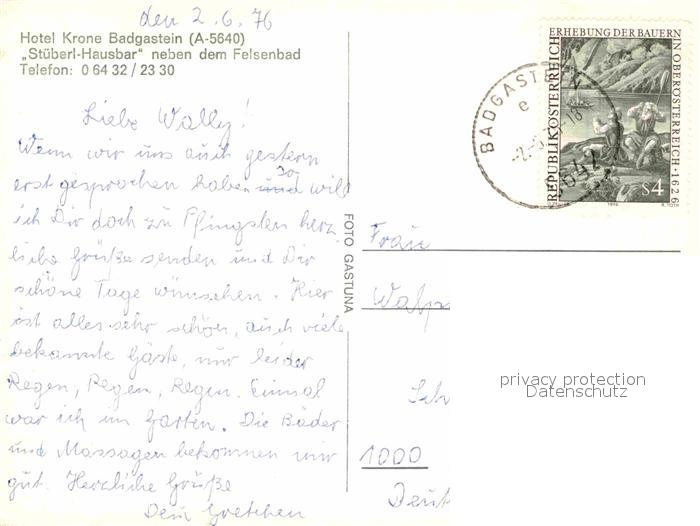 den 2.6.76
Hotel Krone Badgastein (A-5640)
„Stüberl-Hausbar" neben dem Felsenbad
Telefon: 0 64 32 / 23 30
Liebe Wally!
Wenn wir uns auch gestern
erst gesprochen haben so will
ich Dir doch zu Pfingsten herz
liche Grüße senden und Dir
schöne Tage wünschen. Hier
ist alles sehr schön, auch viele
bekannte Gäste, nur leider
Regen, Regen, Regen. Einmal
war ich im Garten. Die Bäder
und Massagen bekommen mir
gut. Herzliche Grüße
Dein Gretchen
FOTO GASTUNA
ERHEBUNG DER BAUERN
IN OBERÖSTERREICH · 1626
REPUBLIK ÖSTERREICH
S4
BADGASTEIN
e
Frau
Walp
Sch
1000
Deut
privacy protection
Datenschutz